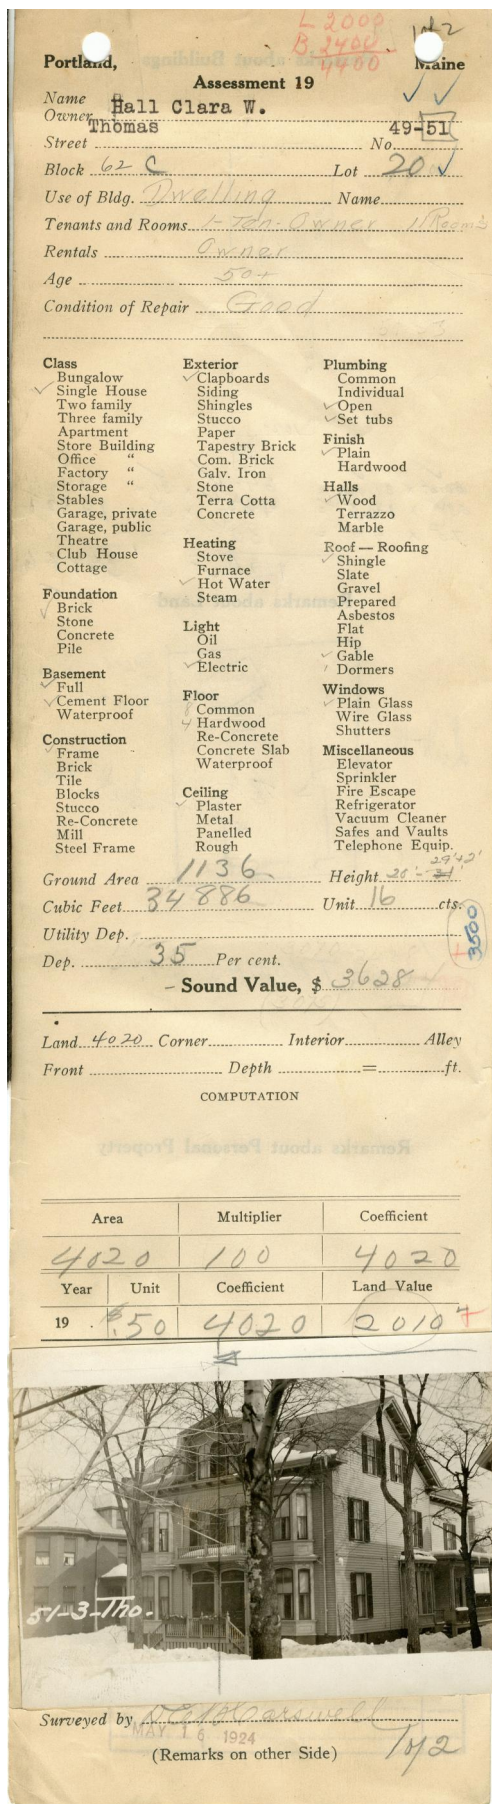 L 2000
B 2400
4400
1 of 2
Portland, Maine
Assessment 19
Name
Owner Hall Clara W.
Street Thomas No. 49-51
Block 62 C Lot 20
Use of Bldg. Dwelling Name
Tenants and Rooms 1-Ten-Owner 11 Rooms
Rentals Owner
Age 50+
Condition of Repair Good
Class
Bungalow
Single House
Two family
Three family
Apartment
Store Building
Office "
Factory "
Storage "
Stables
Garage, private
Garage, public
Theatre
Club House
Cottage
Foundation
Brick
Stone
Concrete
Pile
Basement
Full
Cement Floor
Waterproof
Construction
Frame
Brick
Tile
Blocks
Stucco
Re-Concrete
Mill
Steel Frame
Exterior
Clapboards
Siding
Shingles
Stucco
Paper
Tapestry Brick
Com. Brick
Galv. Iron
Stone
Terra Cotta
Concrete
Heating
Stove
Furnace
Hot Water
Steam
Light
Oil
Gas
Electric
Floor
8 Common
4 Hardwood
Re-Concrete
Concrete Slab
Waterproof
Ceiling
Plaster
Metal
Panelled
Rough
Plumbing
Common
Individual
Open
Set tubs
Finish
Plain
Hardwood
Halls
Wood
Terrazzo
Marble
Roof — Roofing
Shingle
Slate
Gravel
Prepared
Asbestos
Flat
Hip
Gable
Dormers
Windows
Plain Glass
Wire Glass
Shutters
Miscellaneous
Elevator
Sprinkler
Fire Escape
Refrigerator
Vacuum Cleaner
Safes and Vaults
Telephone Equip.
Ground Area 1136 Height
Cubic Feet 34886 Unit 16 cts.
Utility Dep.
3500
Dep. 35 Per cent.
Sound Value, $ 3628
Land 4020 Corner Interior Alley
Front Depth = ft.
COMPUTATION
Area Multiplier Coefficient
4020 100 4020
Year Unit Coefficient Land Value
19 $.50 4020 2010
51-3-Tho.
Surveyed by
MAY 16 1924
(Remarks on other Side) 1 of 2